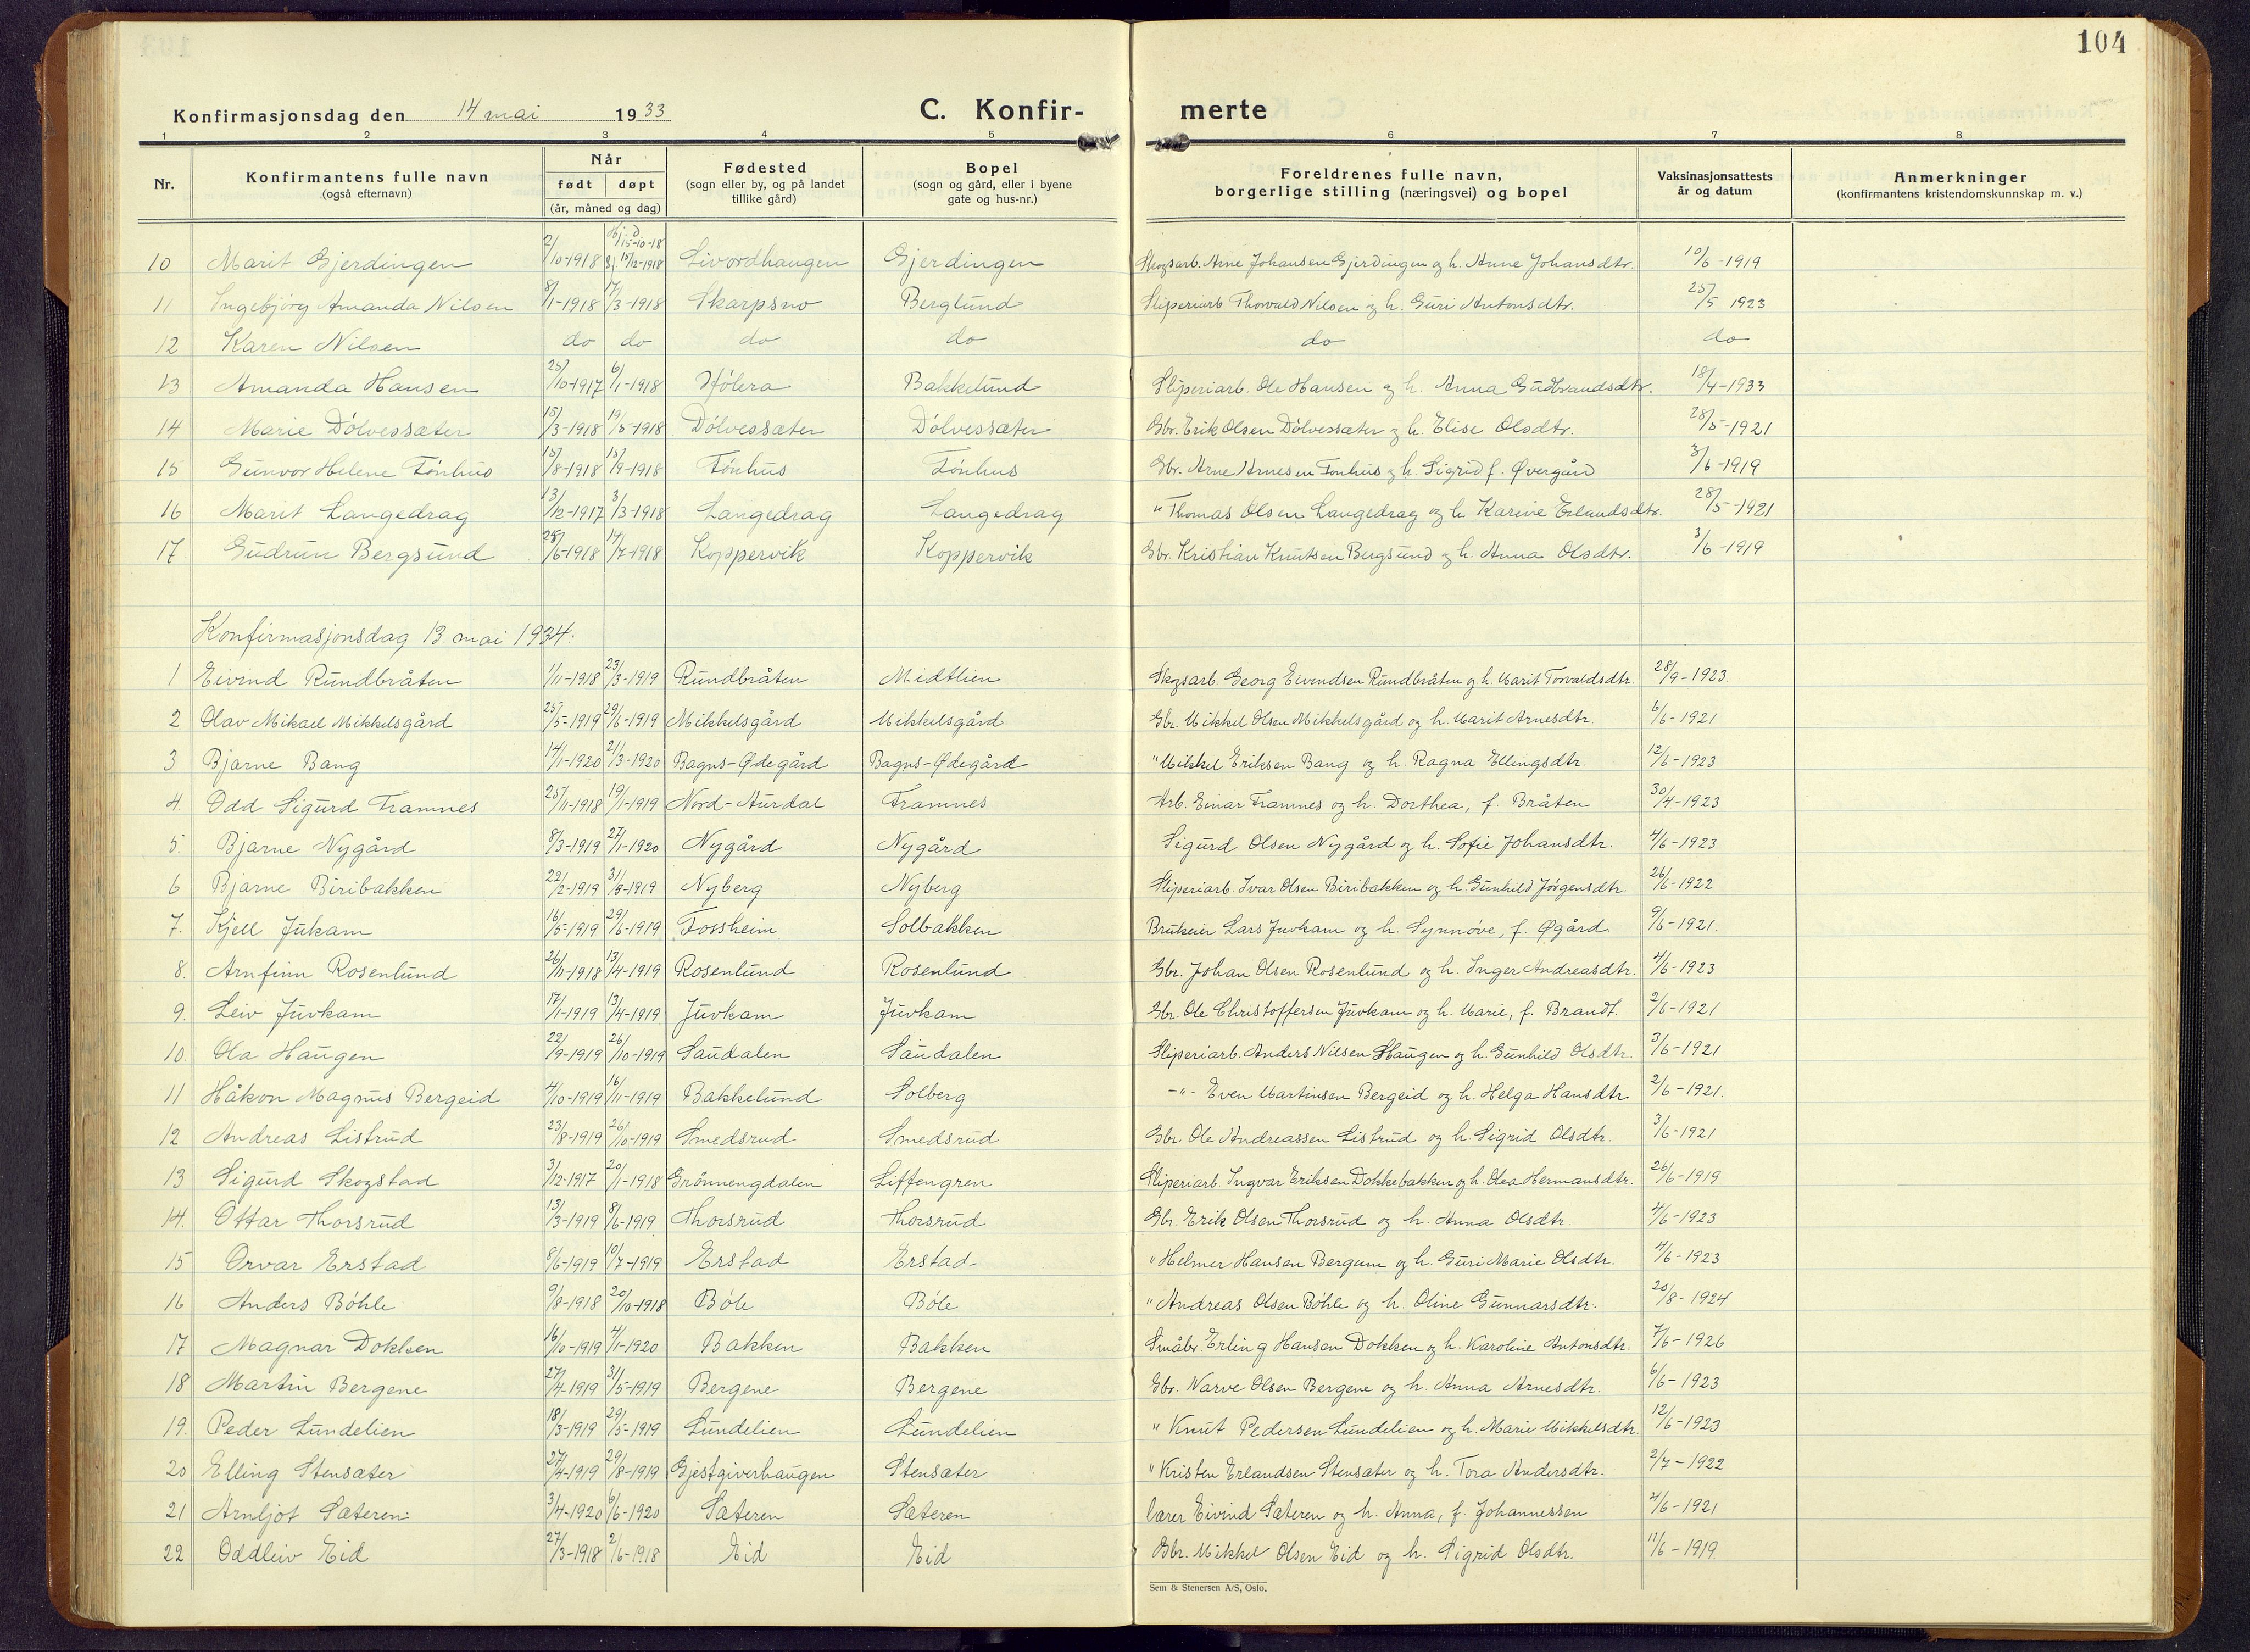 104
Konfirmasjonsdag den 14 mai 1933 C. Konfir- merte
1 2 3 4 5 6 7 8
Nr. Konfirmantens fulle navn (også efternavn) Når født døpt (år, måned og dag) Fødested (sogn eller by, og på landet tillike gård) Bopel (sogn og gård, eller i byene gate og hus-nr.) Foreldrenes fulle navn, borgerlige stilling (næringsvei) og bopel Vaksinasjonsattests år og datum Anmerkninger (konfirmantens kristendomskunnskap m. v.)
10 Marit Gjerdingen 2/10-1918 Hj.d 15-10-18 15/12-1918 Livordhaugen Gjerdingen Skogsarb. Arne Johansen Gjerdingen og h. Anne Johansdtr. 10/6-1919
11 Ingebjörg Amanda Nilsen 8/1-1918 17/3-1918 Skarpsno Berglund Sliperiarb Thorvald Nilsen og h. Guri Antonsdtr. 25/5 1923
12 Karen Nilsen do do do do do do
13 Amanda Hansen 25/10-1917 6/1-1918 Hölera Bakkelund Sliperiarb. Ole Hansen og h. Anna Gudbrandsdtr. 18/4-1933
14 Marie Dölvessæter 15/3-1918 19/5-1918 Dölvessæter Dölvessæter Gbr. Erik Olsen Dölvessæter og h. Elise Olsdtr. 28/5-1921
15 Gunvor Helene Tönhus 15/8-1918 15/9-1918 Tönhus Tönhus Gbr. Arne Arnesen Tonhus og h. Sigrid f. Øvergård 3/6-1919
16 Marit Langedrag 13/12-1917 3/3-1918 Langedrag Langedrag " Thomas Olsen Langedrag og h. Karine Erlandsdtr. 28/5-1921
17 Gudrun Bergsund 28/6-1918 14/7-1918 Koppervik Koppervik Gbr. Kristian Knutsen Bergsund og h. Anna Olsdtr. 3/6-1919
Konfirmasjonsdag 13. mai 1934:
1 Eivind Rundbråten 1/11-1918 23/3-1919 Rundbråten Midtlien Skogsarb. Georg Eivendsen Rundbråten og h. Marit Torvaldsdtr. 28/9-1923.
2 Olav Mikael Mikkelsgård 25/5-1919 29/6-1919 Mikkelsgård Mikkelsgård Gbr. Mikkel Olsen Mikkelsgård og h. Marit Arnesdtr. 6/6-1921
3 Bjarne Bang 14/1-1920 21/3-1920 Bagns-Ødegård Bagns-Ødegård " Mikkel Eriksen Bang og h. Ragna Ellingsdtr. 12/6-1923
4. Odd Sigurd Framnes 25/11-1918 19/1-1919 Nord-Aurdal Framnes Arb. Einar Framnes og h. Dorthea, f. Bråten 30/4-1923
5. Bjarne Nygård 8/3-1919 27/1-1920 Nygård Nygård Sigurd Olsen Nygård og h. Sofie Johansdtr. 4/6-1923
6 Bjarne Biribakken 22/2-1919 31/8-1919 Nyberg Nyberg Sliperiarb. Ivar Olsen Biribakken og h. Gunhild Jörgensdtr. 26/6-1922
7. Kjell Jukam 16/5-1919 29/6-1919 Fossheim Solbakken Brukeier Lars Juvkam og h. Synnöve, f. Øgård 9/6-1921.
8. Arnfinn Rosenlund 26/11-1918 13/4-1919 Rosenlund Rosenlund Gbr. Johan Olsen Rosenlund og h. Inger Andreasdtr. 4/6-1923
9. Leiv Juvkam 17/1-1919 13/4-1919 Juvkam Juvkam Gbr. Ole Christoffersen Juvkam og h. Marie, f. Brandt. 2/6-1921
10. Ola Haugen 22/9-1919 26/10-1919 Saudalen Saudalen Sliperiarb. Anders Nilsen Haugen og h. Gunhild Olsdtr. 3/6-1921
11 Håkon Magnus Bergeid 4/10-1919 16/11-1919 Bakkelund Solberg -"- Even Martinsen Bergeid og h. Helga Hansdtr. 2/6-1921.
12 Andreas Listrud 23/8-1919 26/10-1919 Smedsrud Smedsrud Gbr. Ole Andreassen Listrud og h. Sigrid Olsdtr. 3/6-1921
13 Sigurd Skogstad 3/12-1917 20/1-1918 Grönnengdalen Liffengren Sliperiarb. Ingvar Eriksen Dokkebakken og h. Olea Hermansdtr. 26/6-1919
14. Ottar Thorsrud 13/3-1919 8/6-1919 Thorsrud Thorsrud Gbr. Erik Olsen Thorsrud og h. Anna Olsdtr. 4/6-1923
15 Orvar Erstad 8/6-1919 10/7-1919 Erstad Erstad " Helmer Hansen Bergum og h. Guri Marie Olsdtr. 4/6-1923
16 Anders Böhle 9/8-1918 20/10-1918 Böle Böle " Andreas Olsen Böhle og h. Oline Gunnarsdtr. 20/8-1924
17 Magnar Dokken 16/10-1919 4/1-1920 Bakken Bakken Småbr. Erling Hansen Dokken og h. Karoline Antonsdtr. 7/6-1926
18 Martin Bergene 27/4-1919 31/5-1919 Bergene Bergene Gbr. Narve Olsen Bergene og h. Anna Arnesdtr. 6/6-1923
19. Peder Lundelien 18/3-1919 29/5-1919 Lundelien Lundelien " Knut Pedersen Lundelien og h. Marie Mikkelsdtr. 12/6-1923
20 Elling Stensæter 27/4-1919 29/8-1919 Gjestgiverhaugen Stensæter " Kristen Erlandsen Stensæter og h. Tora Andersdtr. 2/7-1922
21 Arnljot Sæteren 3/4-1920 6/6-1920 Sæteren Sæteren Lærer Eivind Sæteren og h. Anna, f. Johannessen 4/6-1921
22 Oddleiv Eid 27/3-1918 2/6-1918 Eid Eid Gbr. Mikkel Olsen Eid og h. Sigrid Olsdtr. 11/6-1919.
Sem & Stenersen A/S, Oslo.